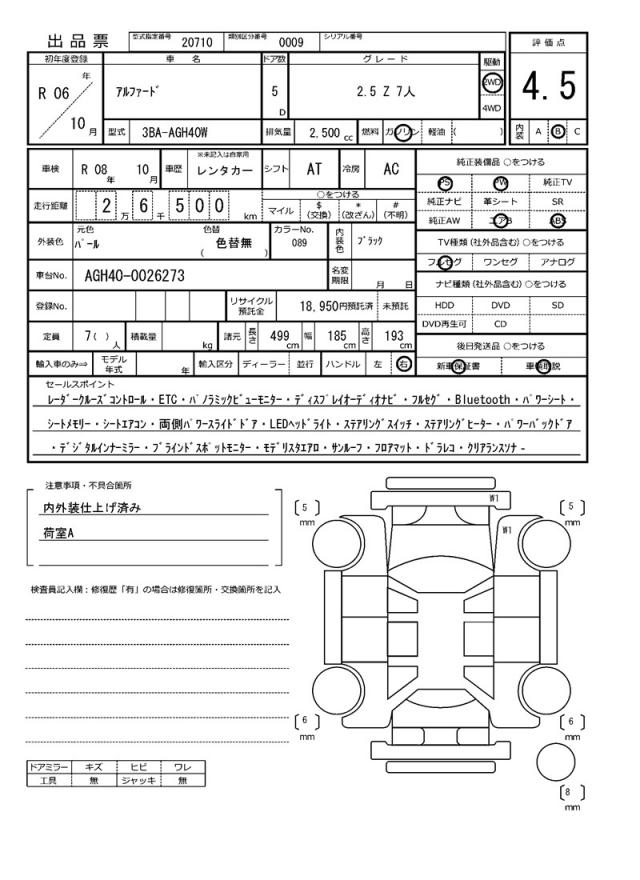 出品票 型式指定番号 20710 類別区分番号 0009 シリアル番号
評価点
4.5
内装 A B C
初年度登録 車名 ドア数 グレード 駆動
R 06 年 10 月 アルファード 5 D 2.5 Z 7人 2WD 4WD
型式 3BA-AGH40W 排気量 2,500 cc 燃料 ガソリン 軽油 ( )
車検 R 08 年 10 月 車歴 ※未記入は自家用 レンタカー シフト AT 冷房 AC
走行距離 2 万 6 千 5 0 0 km ○をつける マイル $ (交換) * (改ざん) # (不明)
外装色 元色 パール 色替 色替無 ( ) カラーNo. 089 内装色 ブラック
車台No. AGH40-0026273 名変期限 月 日
登録No. リサイクル預託金 18,950円預託済 未預託
定員 7( ) 人 積載量 kg 諸元 長さ 499 cm 幅 185 cm 高さ 193 cm
輸入車のみ⇒ モデル年式 年 輸入区分 ディーラー 並行 ハンドル 左 右
純正装備品 ○をつける
PS PW 純正TV
純正ナビ 革シート SR
純正AW エアB ABS
TV種類(社外品含む) ○をつける
フルセグ ワンセグ アナログ
ナビ種類(社外品含む) ○をつける
HDD DVD SD
DVD再生可 CD
後日発送品 ○をつける
新車保証書 車輌取説
セールスポイント
レーダークルーズコントロール・ETC・パノラミックビューモニター・ディスプレイオーディオナビ・フルセグ・Bluetooth・パワーシート・
シートメモリー・シートエアコン・両側パワースライドドア・LEDヘッドライト・ステアリングスイッチ・ステアリングヒーター・パワーバックドア
・デジタルインナーミラー・ブラインドスポットモニター・モデリスタエアロ・サンルーフ・フロアマット・ドラレコ・クリアランスソナ-
注意事項・不具合箇所
内外装仕上げ済み
荷室A
検査員記入欄:修復歴「有」の場合は修復箇所・交換箇所を記入
ドアミラー キズ ヒビ ワレ
工具 無 ジャッキ 無
W1
W1
[5] mm
[5] mm
[6] mm
[6] mm
[8] mm